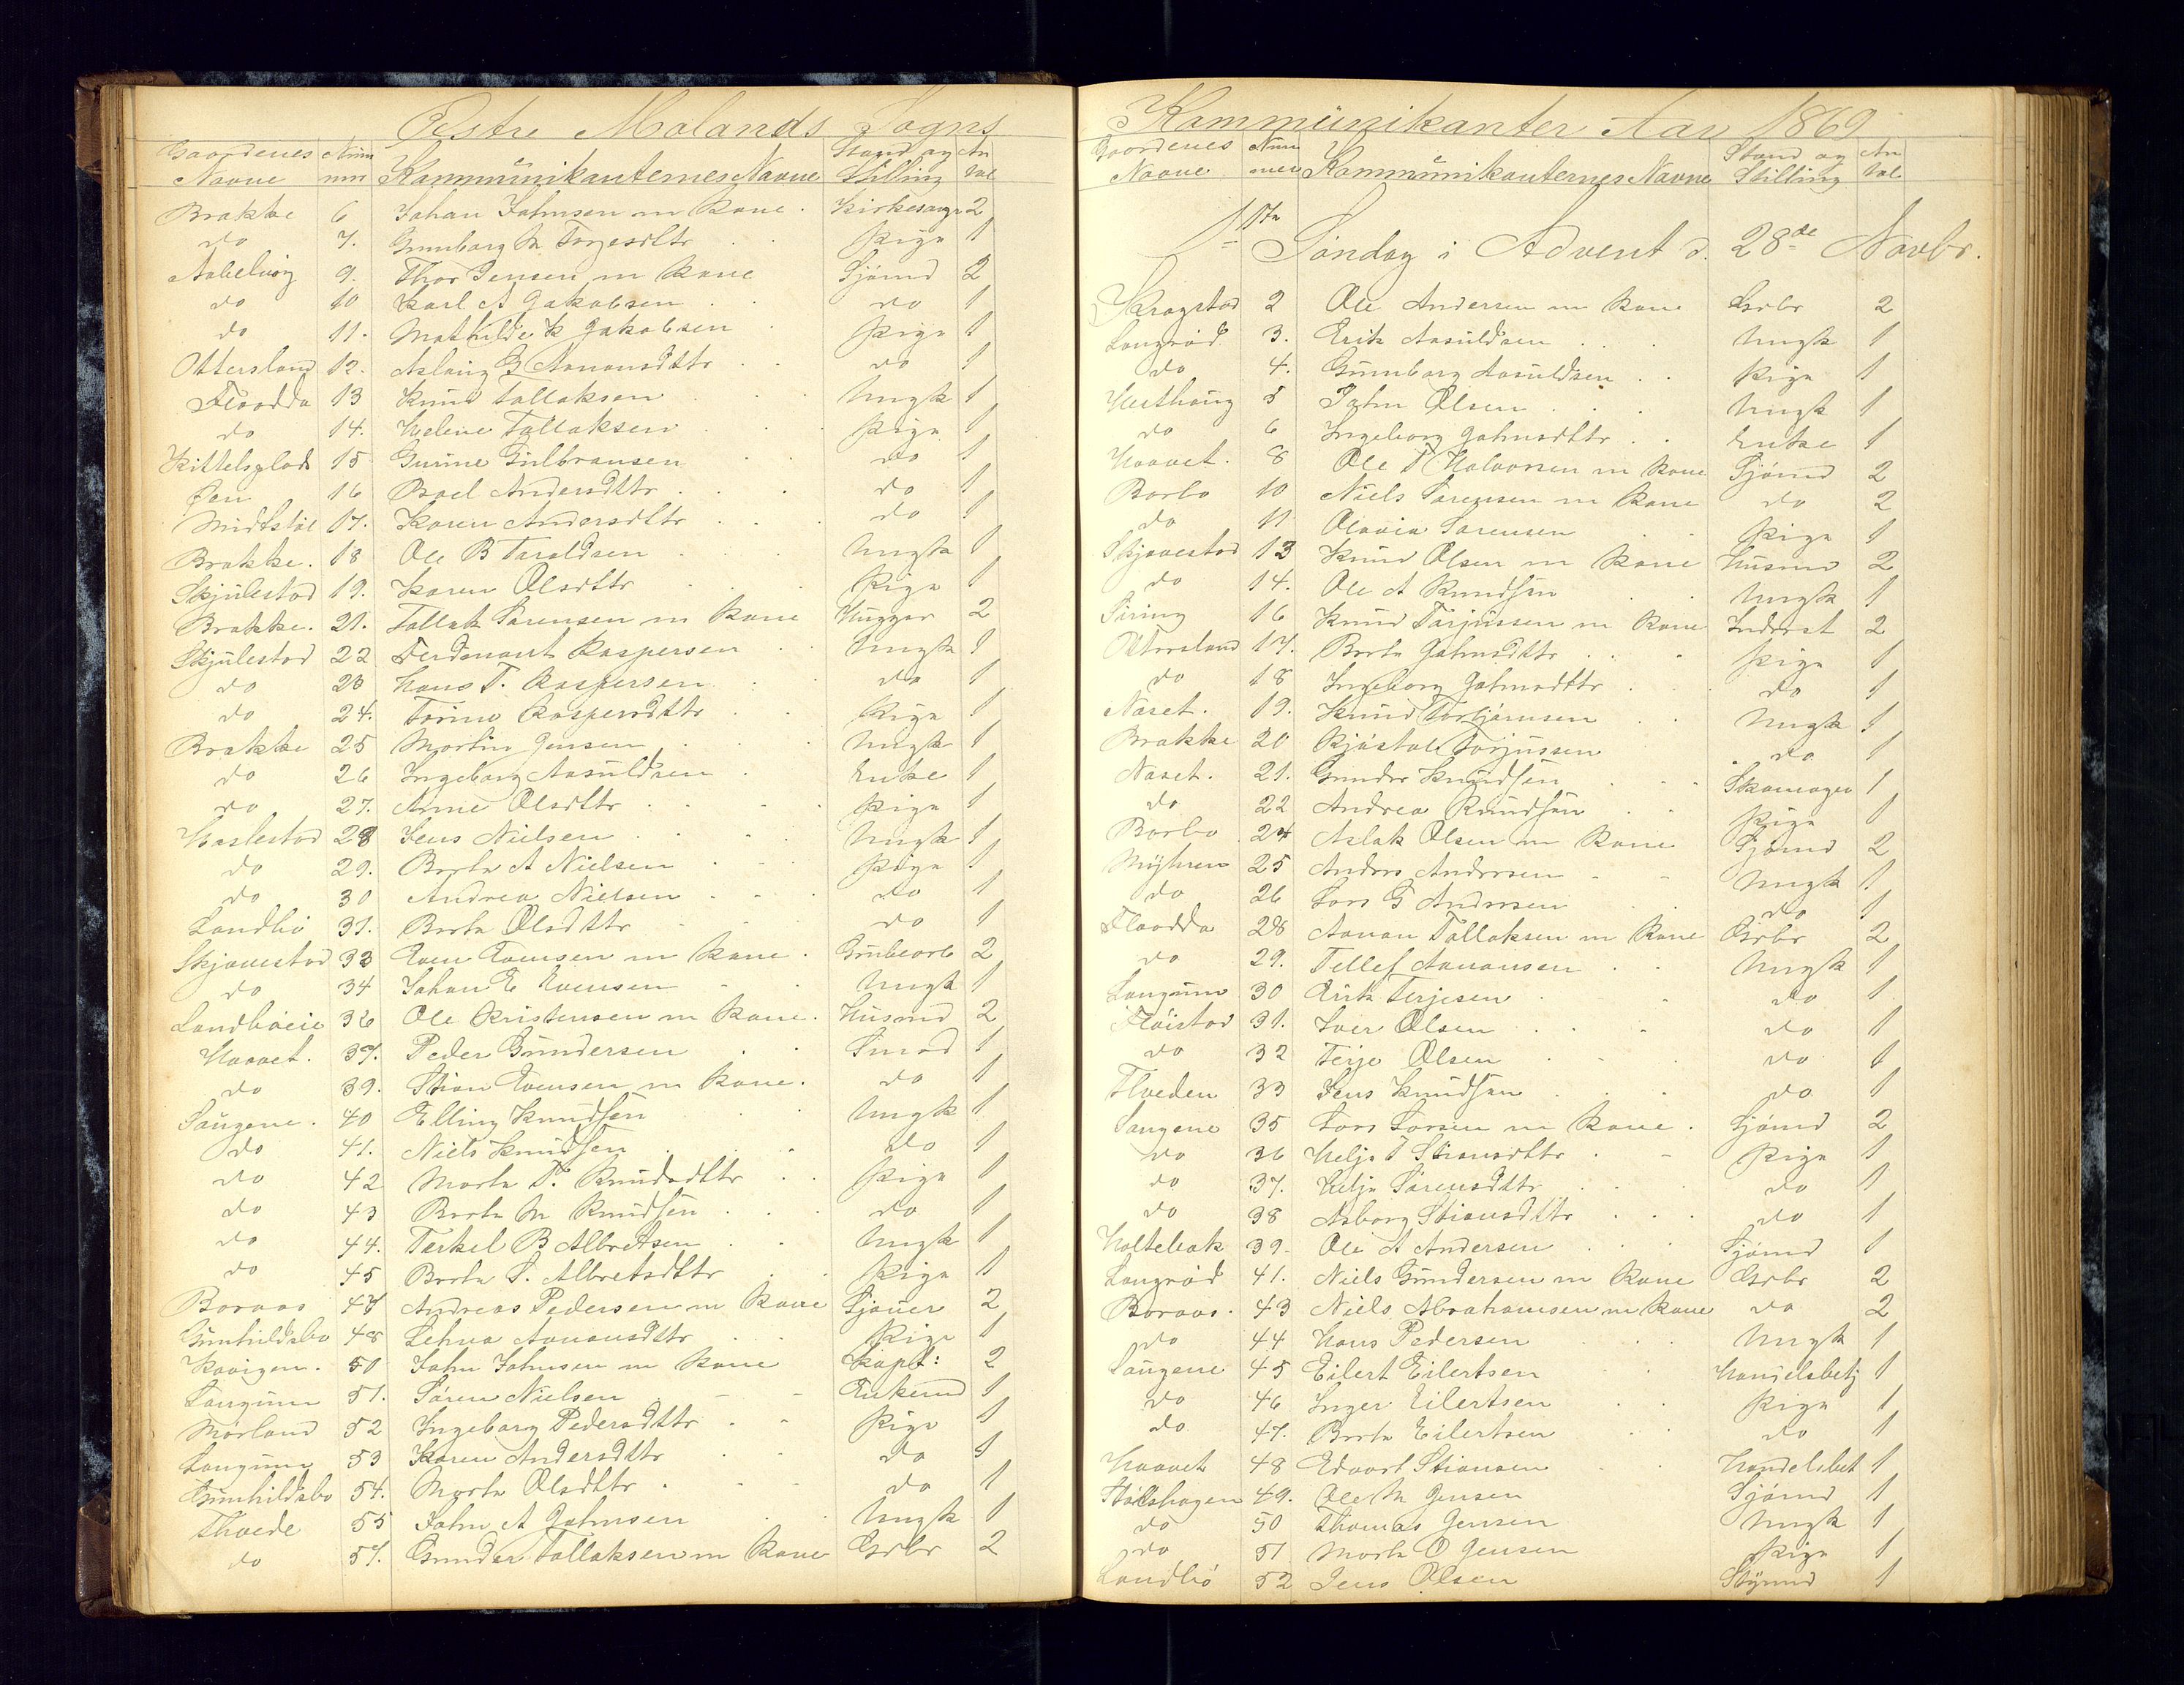 Østre Molands Sogns
Gaardenes Navne Num mer Kommunikanternes Navne Stand og Stilling An tal
Brække 6 Johan Johnsen m Kone . Kirkesanger 2
do 7. Gunborg M Torjesdttr . . Pige 1
Assævig 9. Thor Jensen m Kone Sjømd 2
do 10 Karl A Jakobsen . . do 1
do 11. Mathilde K Jakobsen . Pige 1
Ottersland 12. Aslaug G Aanonsdttr . . do 1
Flaadda 13 Knud Tallaksen . . Ungk 1
do 14. Helene Tallaksen . . Pige 1
Kittelsplads 15 Gurine Gulbransen . . do 1
Øen 16 Boel Andersdttr . . . do 1
Midtstøl 17. Karen Andersdttr . . . do 1
Brække . 18 Ole B Taraldsen . . . Ungk 1
Skjulestad 19. Karen Olsdttr . . . Pige 1
Brække . 21. Tallak Sørensen m Kone Hugger 2
Skjulestad 22 Ferdenant Kaspersen . . Ungk 1
do 23 Hans T. Kaspersen . . do 1
do 24. Torine Kaspersdttr . . Pige 1
Brække 25 Martin Jensen . . . Ungk 1
do 26 Ingeborg Aasuldsen . Enke 1
do 27. Anne Olsdttr . . . . Pige 1
Haslestad 28 Jens Nielsen . . . . Ungk 1
do 29. Berte A Nielsen . - - Pige 1
do 30 Andrea Nielsen . . . do 1
Landbø 31. Berte Olsdttr - - do 1
Skjævestad 33 Even Evensen m Kone . Grubearb 2
do 34 Johan E Evensen - . Ungk 1
Landbøeie 36 Ole Kristensen m Kone . Husmd 2
Haavet . 37. Peder Gundersen . . Smed 1
do 39. Stian Evensen m Kone . do 1
Saugene . 40 Elling Knudsen . . Ungk 1
do 41. Niels Knudsen . . . do 1
do 42 Marte T. Knudsdttr . . Pige 1
do 43 Berte M Knudsen . . . do 1
do 44. Terkel B Albretsen . . Ungk 1
do 45 Berte S. Albretsdttr . . Pige 1
Boraas 47 Andreas Pedersen m Kone Sjauer 2
Gunhildsbo 48 Lehna Aanonsdttr . . Pige 1
Kaaigen . 50 John Johnsen m Kone Kapt : 2
Langum 51. Søren Nielsen - - Enkemd 1
Mørland 52 Ingeborg Pedersdttr . - Pige 1
Langum 53 Karen Andersdttr . . do 1
Gunhildsbo 54. Marte Olsdttr . - - do 1
Thvede 55 John A Johnsen . . Ungk 1
do 57. Gunder Tallaksen m Kone Grbr 2
Kommunikanter Aar 1869
Gaardenes Navne Num mer Kommunikanternes Navne Stand og Stilling An tal
1ste Søndag i Advent d. 28de Novbr.
Kragstad 2 Ole Andersen m Kone Grbr 2
Langrød 3. Erik Aasuldsen . . . Ungk 1
do 4. Gunborg Aasuldsen . . Pige 1
Hesthaug 5 John Olsen . . . Ungk 1
do 6 Ingeborg Johnsdttr . . Enke 1
Haavet . 8 Ole T Halvorsen m Kone Sjømd 2
Barbo 10 Niels Sørensen m Kone do 2
do 11 Olavia Sørensen . . Pige 1
Skjævestad 13 Knud Olsen m Kone Husmd 2
do 14. Ole A Knudsen . . Ungk 1
Søring 16 Knud Terjussen m Kone Inderst 2
Ottersland 17. Berte Johnsdttr . . . Pige 1
do 18 Ingeborg Johnsdttr . . do 1
Næset . 19. Knud Torbjørnsen . . Ungk 1
Brække 20 Kjøstol Torjussen . do 1
Næset . 21. Gunder Knudsen . . Skomager 1
do 22 Andrea Knudsen . . Pige 1
Barbo 24 Aslak Olsen m Kone Sjømd 2
Myhren 25 Anders Andersen - - Ungk 1
do 26 Lars G Andersen . . do 1
Flaadda 28 Aanon Tallaksen m Kone Grbr 2
do 29. Tellef Aanonsen . . Ungk 1
Langum 30 Erik Terjesen . . do 1
Fløistad 31. Iver Olsen . . . do 1
do 32 Terje Olsen . - . do 1
Thveden 33 Jens Knudsen . . . do 1
Saugene 35 Lars Larsen m Kone . Sjømd 2
do 36 Helje T Stiansdttr . - Pige 1
do 37. Helje Sørensdttr . . do 1
do 38 Asborg Stiansdttr . . . do 1
Holtebæk 39 . Ole A Andersen . . . Sjømd 1
Langrød 41. Niels Gundersen m Kone Grbr 2
Boraas . 43 Niels Abrahamsen m Kone do 2
do 44 Hans Pedersen . . Ungk 1
Saugene 45 Eilert Eilertsen . . Handelsbetj 1
do 46 Inger Eilertsen . . Pige 1
do 47. Berte Eilertsen . . do 1
Haavet 48 Edvart Stiansen . . Handelsbet 1
Stølshagen 49. Ole M Jensen Sjømd 1
do 50 Thomas Jensen Ungk 1
do 51 Marte O Jensen Pige 1
Landbø 52 Jens Olsen Styrmd 1